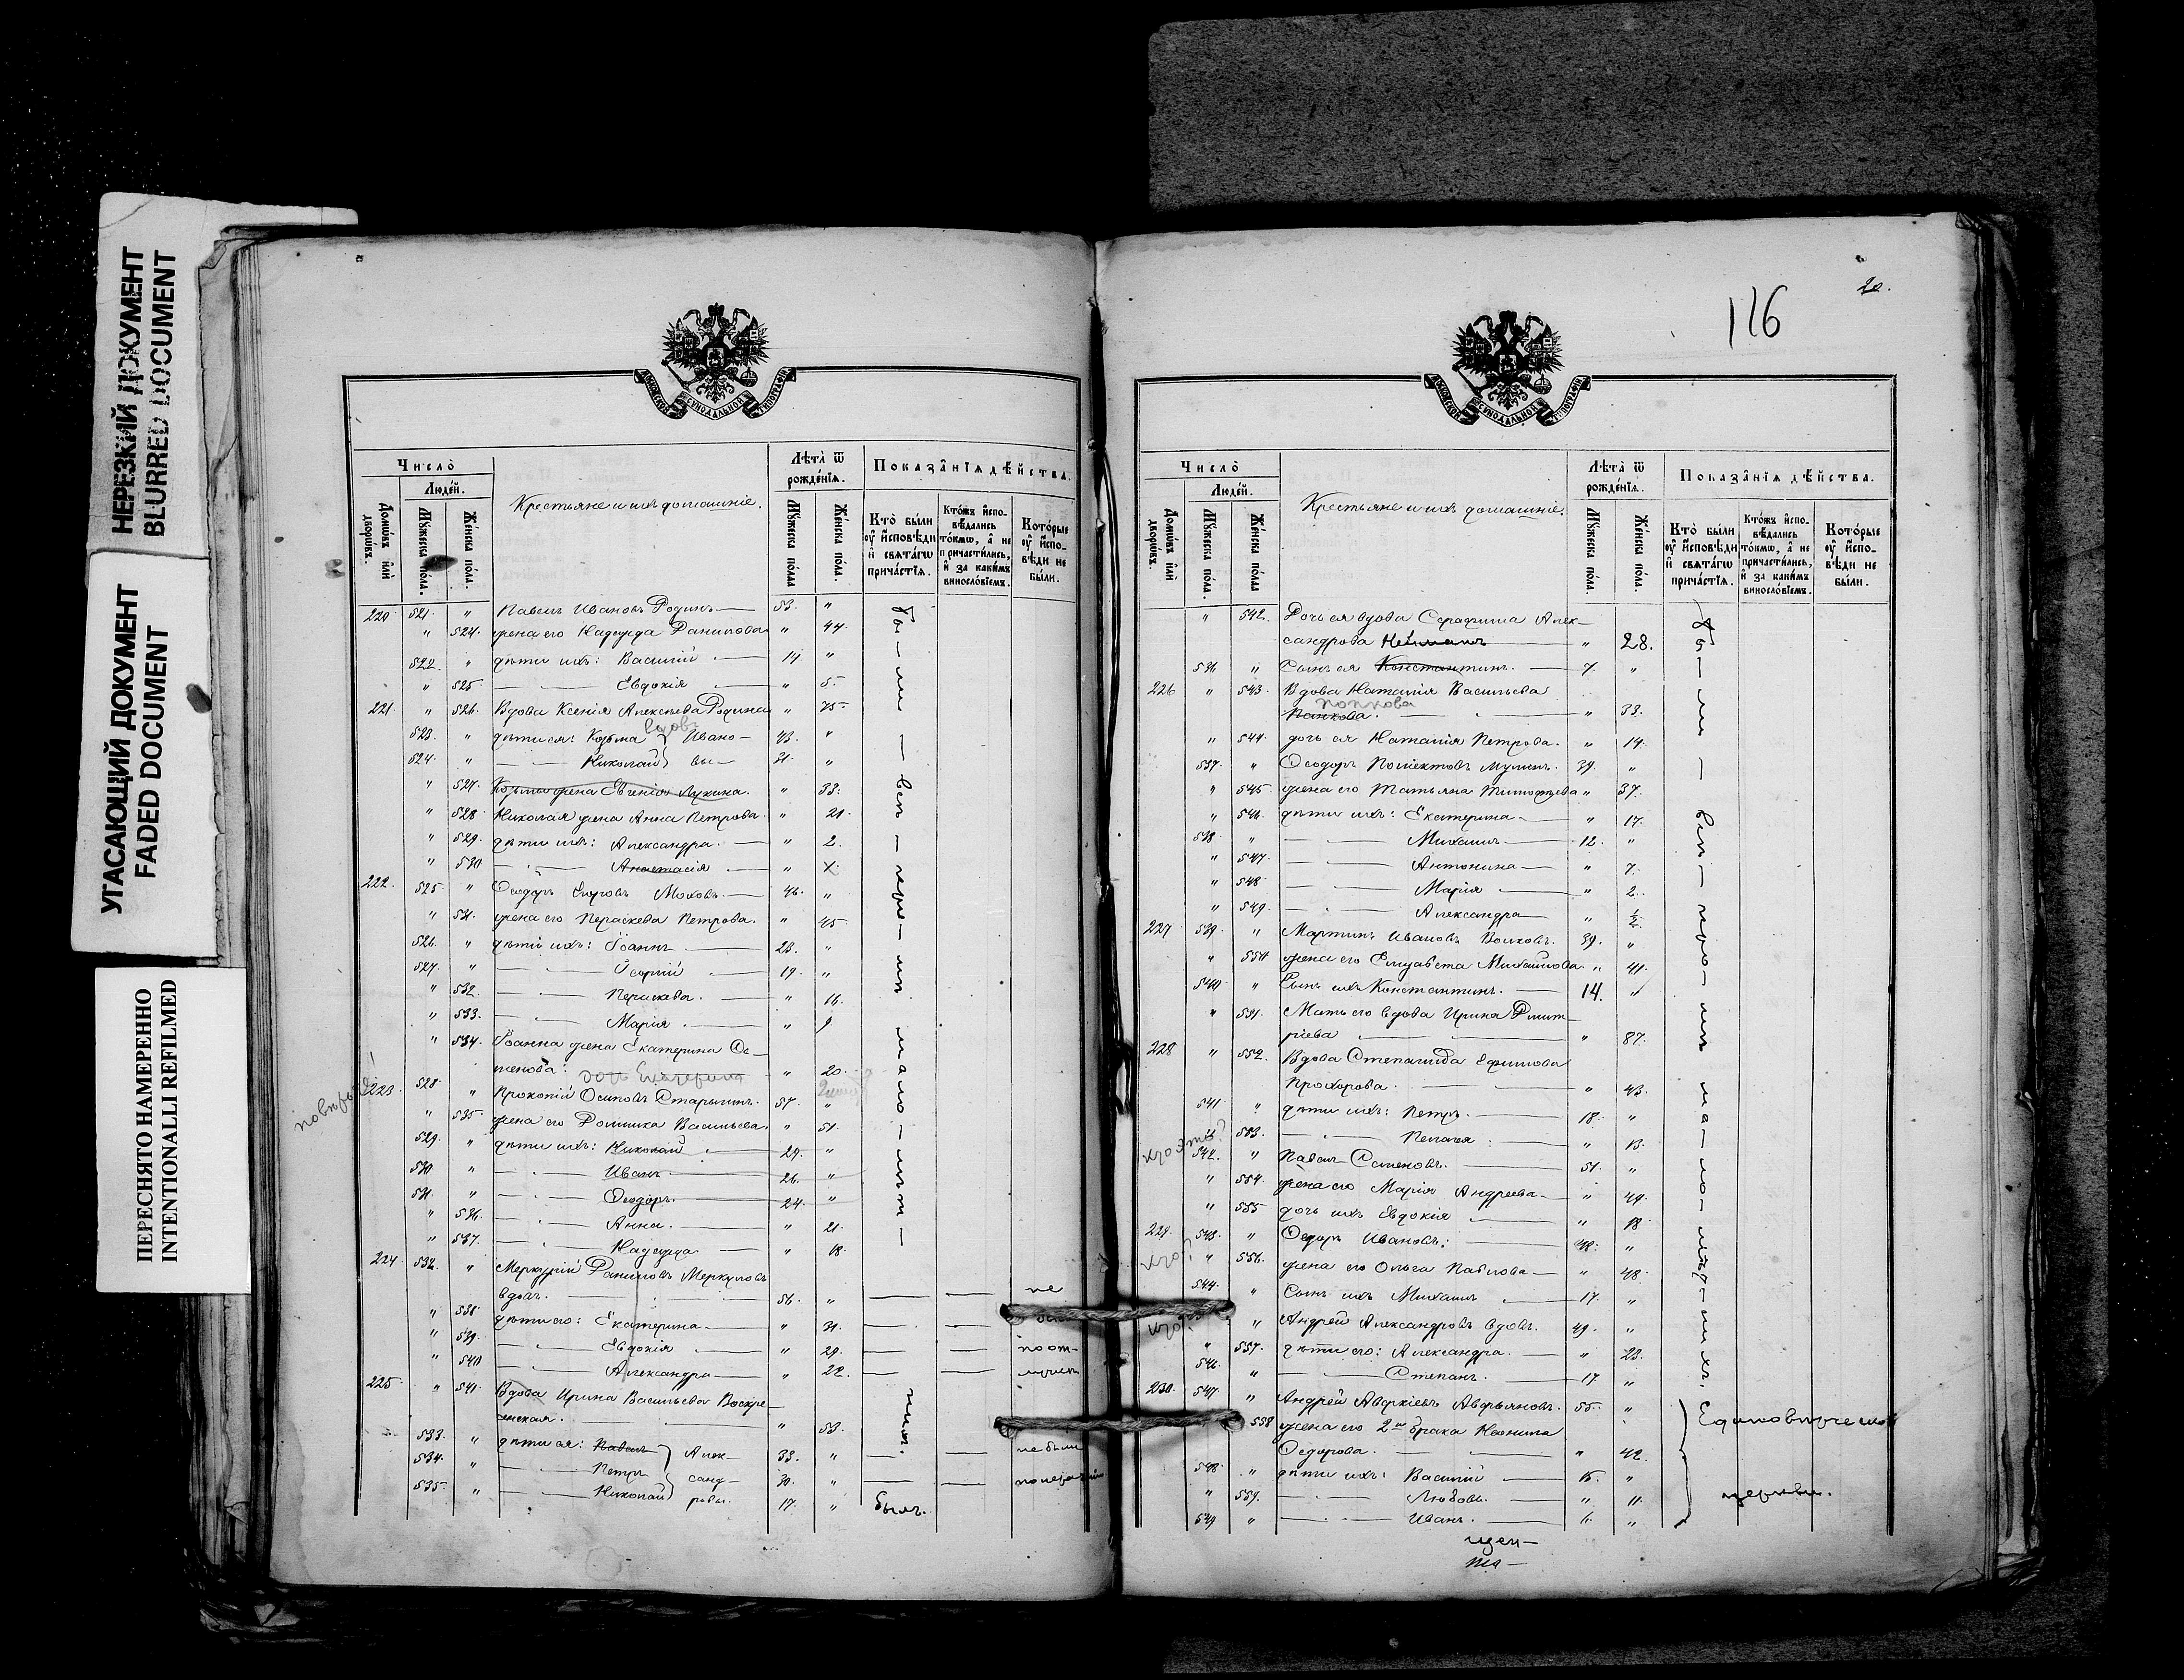 НЕРЕЗКИЙ ДОКУМЕНТ
BLURRED DOCUMENT
УГАСАЮЩИЙ ДОКУМЕНТ
FADED DOCUMENT
ПЕРЕСНЯТО НАМЕРЕННО
INTENTIONALLI REFILMED
МОСКОВСКОЙ СѴНОДАЛЬНОЙ ТИПОГРАФІИ
Число̀
Люде́й.
Домѡ́въ и҆лѝ дворѡ́въ.
Мꙋ́жеска по́ла.
Же́нска по́ла.
Крестьяне и ихъ домашніе.
Лѣта̀ ѿ рожде́нїѧ.
Мꙋ́жеска по́ла
Же́нска по́ла.
Показа̑нїѧ дѣ́йства.
Кто̀ бы́ли оу҆ и҆сповѣди и҆ свѧта́гѡ прича́стїѧ.
Кто́жъ и҆спо-
вѣ́дались то́кмѡ, а҆ не причасти́лись, и҆ за каки́мъ винословїемъ.
Кото́рые оу҆ и҆спо-
вѣди не бы́ли.
220 521. " Павелъ Ивановъ Родинъ — 53. "
" 524. жена его Надежда Данилова " 44.
522. " дѣти ихъ: Василій — 14 "
" 525 — Евдокія — " 5.
221. " 526. Вдова Ксенія Алексѣева Родина " 75
вдовъ
523. " дѣти ея: Козьма } Ивано— 43. "
524. " — Николай } вы— 21. "
" 527. Козьмы жена Евгенія Лукина. " 33.
" 528 Николая жена Анна Петрова. " 21.
" 529. дѣти ихъ: Александра. — " 2.
" 530 — Анастасія — "
222. 525 " Ѳеодоръ Егоровъ Моховъ — 46. "
" 531. жена его Параскева Петрова. " 45
526. " дѣти ихъ: Іоаннъ — 23. "
527. " — Георгій — 19. "
" 532. — Параскева. — " 16.
" 533. — Марія — " 9
" 534. Іоанна жена Екатерина Се—
менова. дочь Екатерина " 20.
223. 528. " Прокопій Осиповъ Старынинъ. 57. "
" 535 жена его Домника Васильева. " 51.
529. " дѣти ихъ: Николай — 29. "
530 " — Иванъ — 26. "
531. " — Ѳеодоръ. — 24. "
" 536. — Анна. — " 21.
" 537. — Надежда — " 18.
224 532. " Меркурій Даниловъ Меркуловъ
вдовъ. — 56. " — — не
" 538 дѣти его: Екатерина — " 31. — —
" 539. — Евдокія — " 29. — — по от—
" 540 — Александра — " 22. — — лучкѣ
225 " 541. Вдова Ирина Васильева Воскре—
сенская. — " 53.
533. " дѣти ея: Павелъ } Алек— 33. " — — не были
534. " — Петръ } санд— 30. " — —
535. " — Николай } ровы. 17. " былъ.
Бы—ли — всѣ — кро—мѣ мало—лѣт—нихъ.
116
20.
МОСКОВСКОЙ СѴНОДАЛЬНОЙ ТИПОГРАФІИ
Число̀
Люде́й.
Домѡ́въ и҆лѝ дворѡ́въ.
Мꙋ́жеска по́ла.
Же́нска по́ла.
Крестьяне и ихъ домашніе.
Лѣта̀ ѿ рожде́нїѧ.
Мꙋ́жеска по́ла.
Же́нска по́ла.
Показа̑нїѧ дѣ́йства.
Кто̀ бы́ли оу҆ и҆сповѣди и҆ свѧта́гѡ прича́стїѧ.
Кто́жъ и҆спо-
вѣ́дались то́кмѡ, а҆ не причасти́лись, и҆ за каки́мъ винословїемъ.
Кото́рые оу҆ и҆спо-
вѣди не бы́ли.
" 542. Дочь ея вдова Серафима Алек—
сандрова Нейманъ — " 28.
536 " Сынъ ея Константинъ. — 7. "
226 " 543. Вдова Наталія Васильева
попкова
Панкова. — " 33.
" 544. дочь ея Наталія Петрова. " 14.
537. " Ѳеодоръ Поліектовъ Мулинъ. 39. "
" 545 жена его Татьяна Тимоѳеева " 37.
" 546. дѣти ихъ: Екатерина — " 17.
538 " — Михаилъ — 12. "
" 547. — Антонина — " 7.
" 548. — Марія — " 2.
" 549. — Александра — " ½.
227 539. " Мартинъ Ивановъ Волковъ. 39. "
" 550 жена его Елизавета Михайлова. " 41.
540 " Сынъ ихъ Константинъ. — 14. "
" 551. Мать его вдова Ирина Димит—
ріева — " 87.
228 " 552. Вдова Степанида Ефимова
Прохорова. — " 43.
541. " дѣти ихъ: Петръ. — 18. "
" 553. — Пелагея — " 13.
кто это?
542. " Павелъ Семеновъ. — 51. "
" 554. жена его Марія Андреева — " 49.
" 555 дочь ихъ Евдокія — " 18
229. 543. " Ѳедоръ Ивановъ. — 48. "
кто?
" 556. жена его Ольга Павлова — " 48.
544. " Сынъ ихъ Михаилъ — 17. "
кто?
" Андрей Александровъ вдовъ. 49. "
" 557. дѣти его: Александра. — " 23.
546. " — Степанъ. — 17 "
230. 547. " Андрей Аверкіевъ Аверьяновъ. 55. "
558 жена его 2го брака Неонила
Ѳедорова. — " 42.
548. " дѣти ихъ: Василій — 15. "
" 559. — Любовь — " 11.
549 " — Иванъ. — 6. "
Бы—ли — всѣ — кро—мѣ ма—ло—лѣт—нихъ.
Единовѣрческой
церкви.